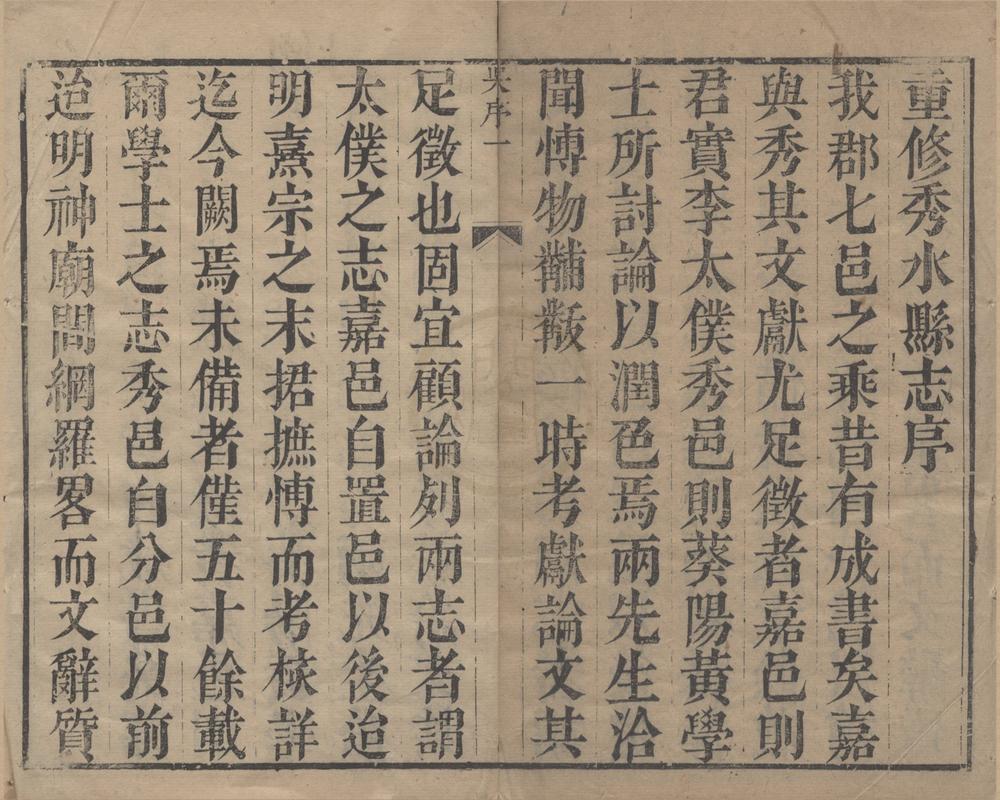 重修秀水縣志序
我郡七邑之乘昔有成書矣嘉
與秀其文獻尤足徵者嘉邑則
君實李太僕秀邑則葵陽黃學
士所討論以潤色焉兩先生洽
聞博物黼黻一時考獻論文其
吳序一
足徵也固宜顧論列兩志者謂
太僕之志嘉邑自置邑以後迨
明熹宗之末捃摭博而考核詳
迄今闕焉未備者僅五十餘載
爾學士之志秀邑自分邑以前
迨明神廟間網羅畧而文辭質